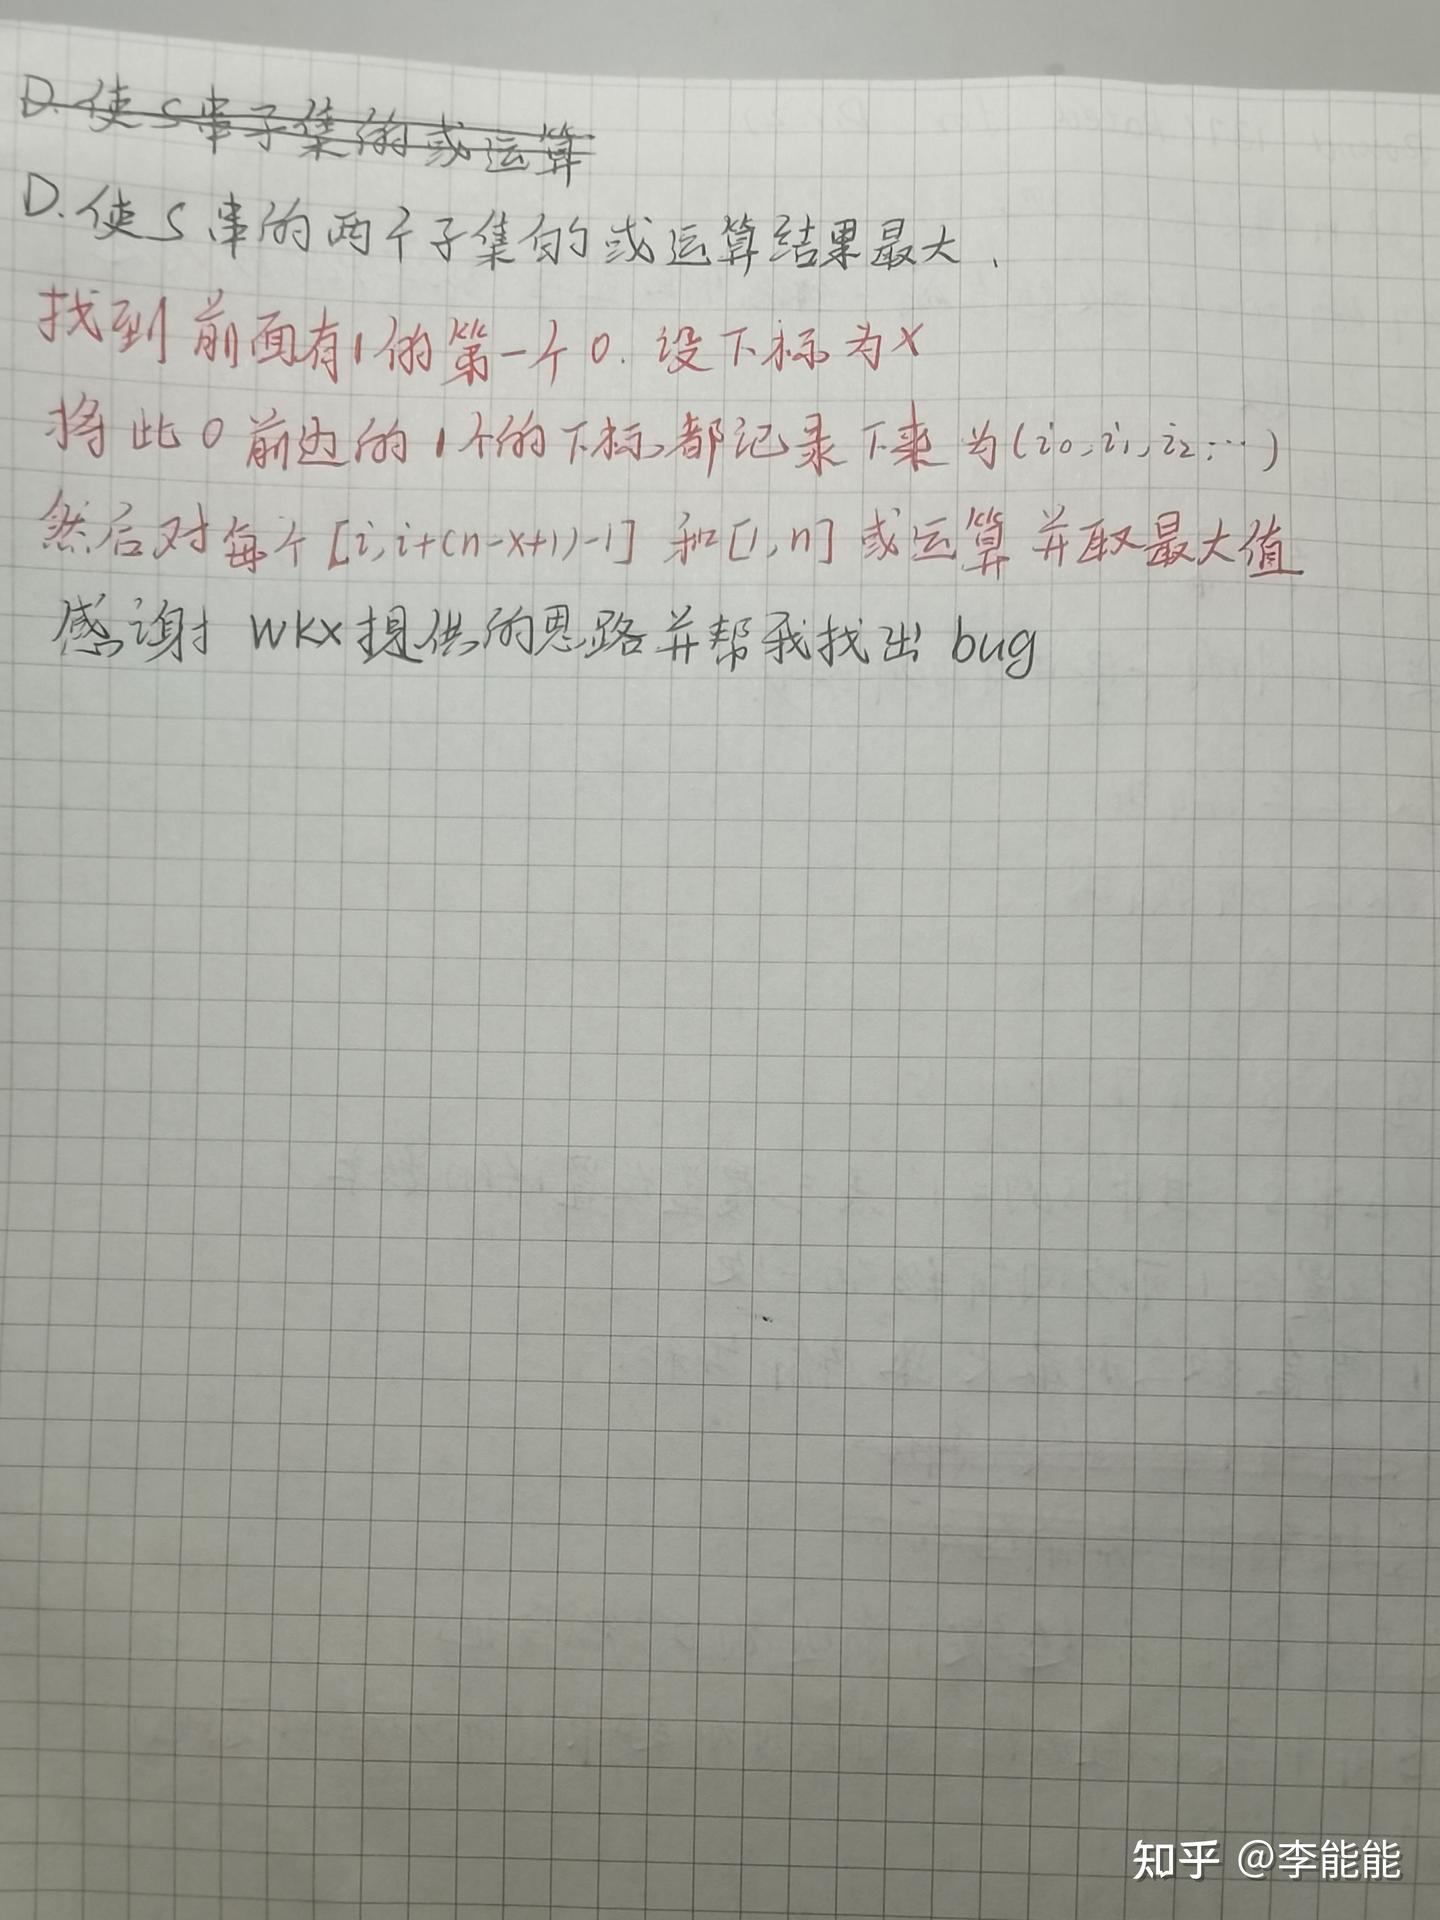 D.使S串子集的或运算
D.使S串的两个子集的或运算结果最大.
找到前面有1的第一个0.设下标为x
将此0前边的1个的下标都记录下来为(i0,i1,i2,…)
然后对每个[i,i+(n-x+1)-1]和[1,n]或运算并取最大值
感谢wkx提供的思路并帮我找出bug
知乎 @李能能